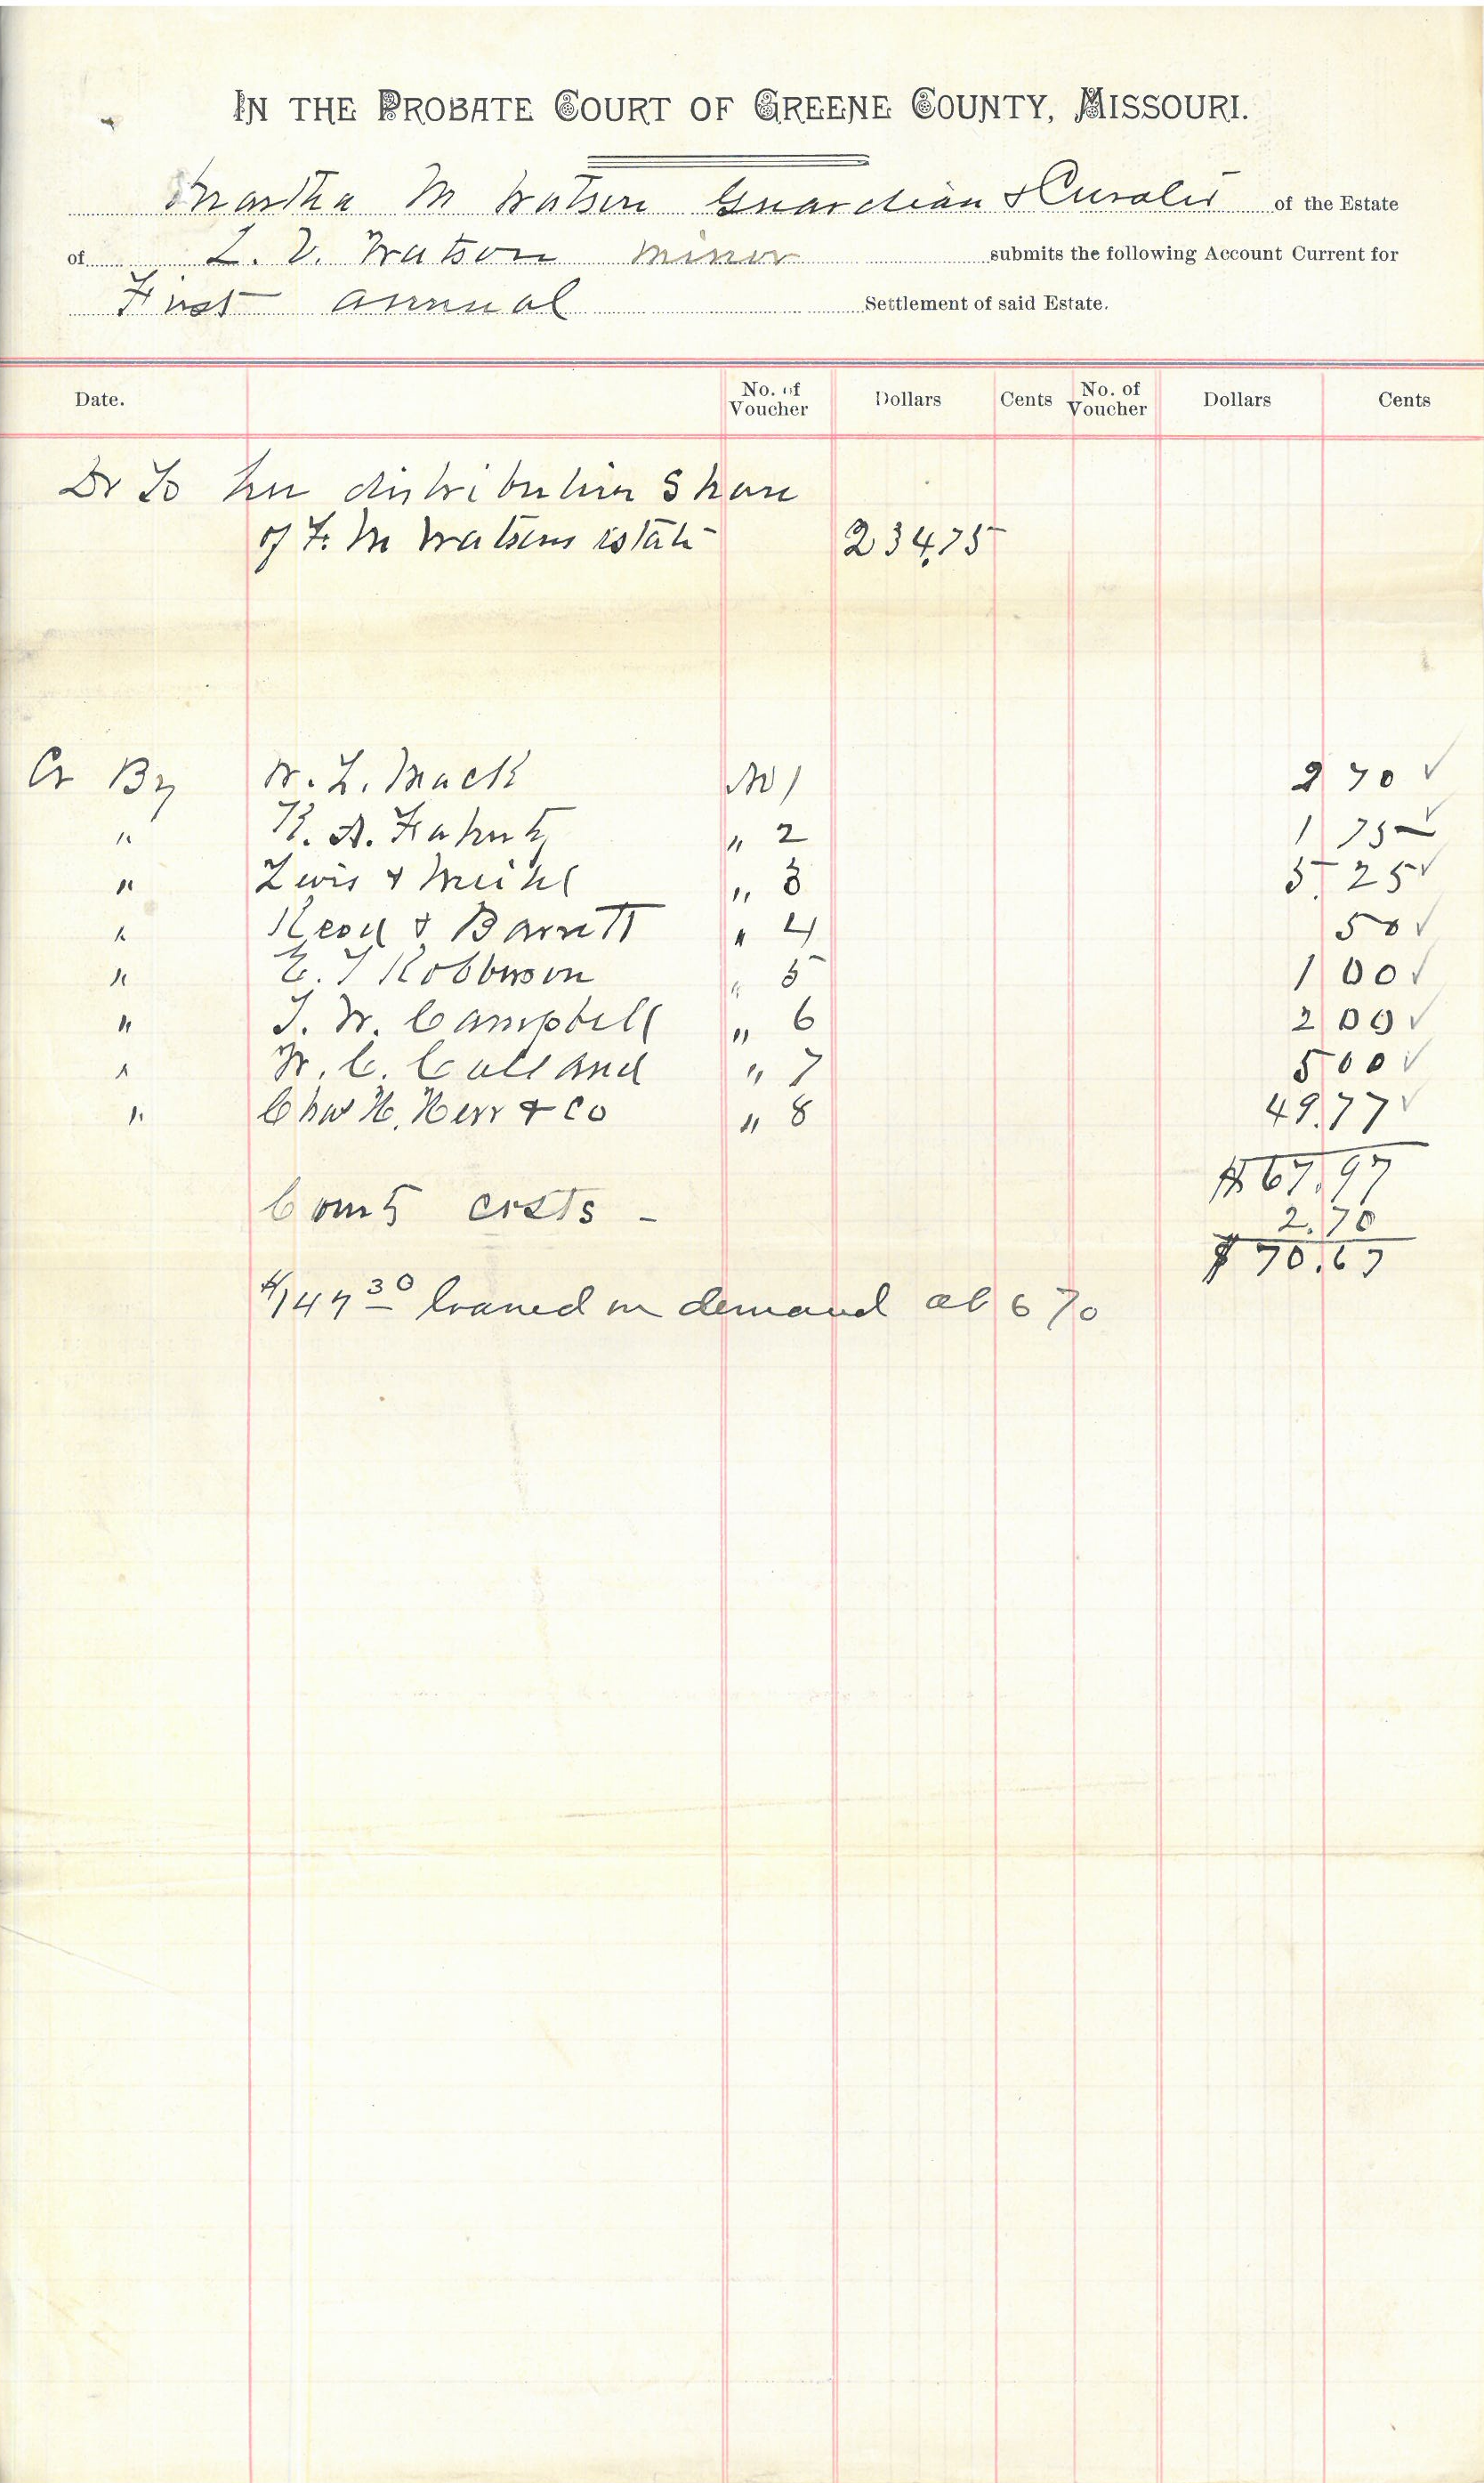 IN THE PROBATE COURT OF GREENE COUNTY, MISSOURI.
Martha M Watson Guardian & Curator of the Estate
of L. V. Watson minor submits the following Account Current for
First annual Settlement of said Estate.
Date. No. of Voucher Dollars Cents No. of Voucher Dollars Cents
Dr To her distributive Share
of F. M Watsons estate 234.75
Cr By W. L. Mack No 1 2 70 ✓
" R. A. " 2 1 75 ✓
" Lewis & " 3 5. 25 ✓
" & Barrett " 4 50 ✓
" E. T Robberson " 5 1 00 ✓
" T. W. Campbell " 6 2 00 ✓
" W. C. Calland " 7 5 00 ✓
" Chas H. Herr & Co " 8 49.77 ✓
$67.97
County costs - 2.70
$70.67
$147 30 loaned on demand at 6 %